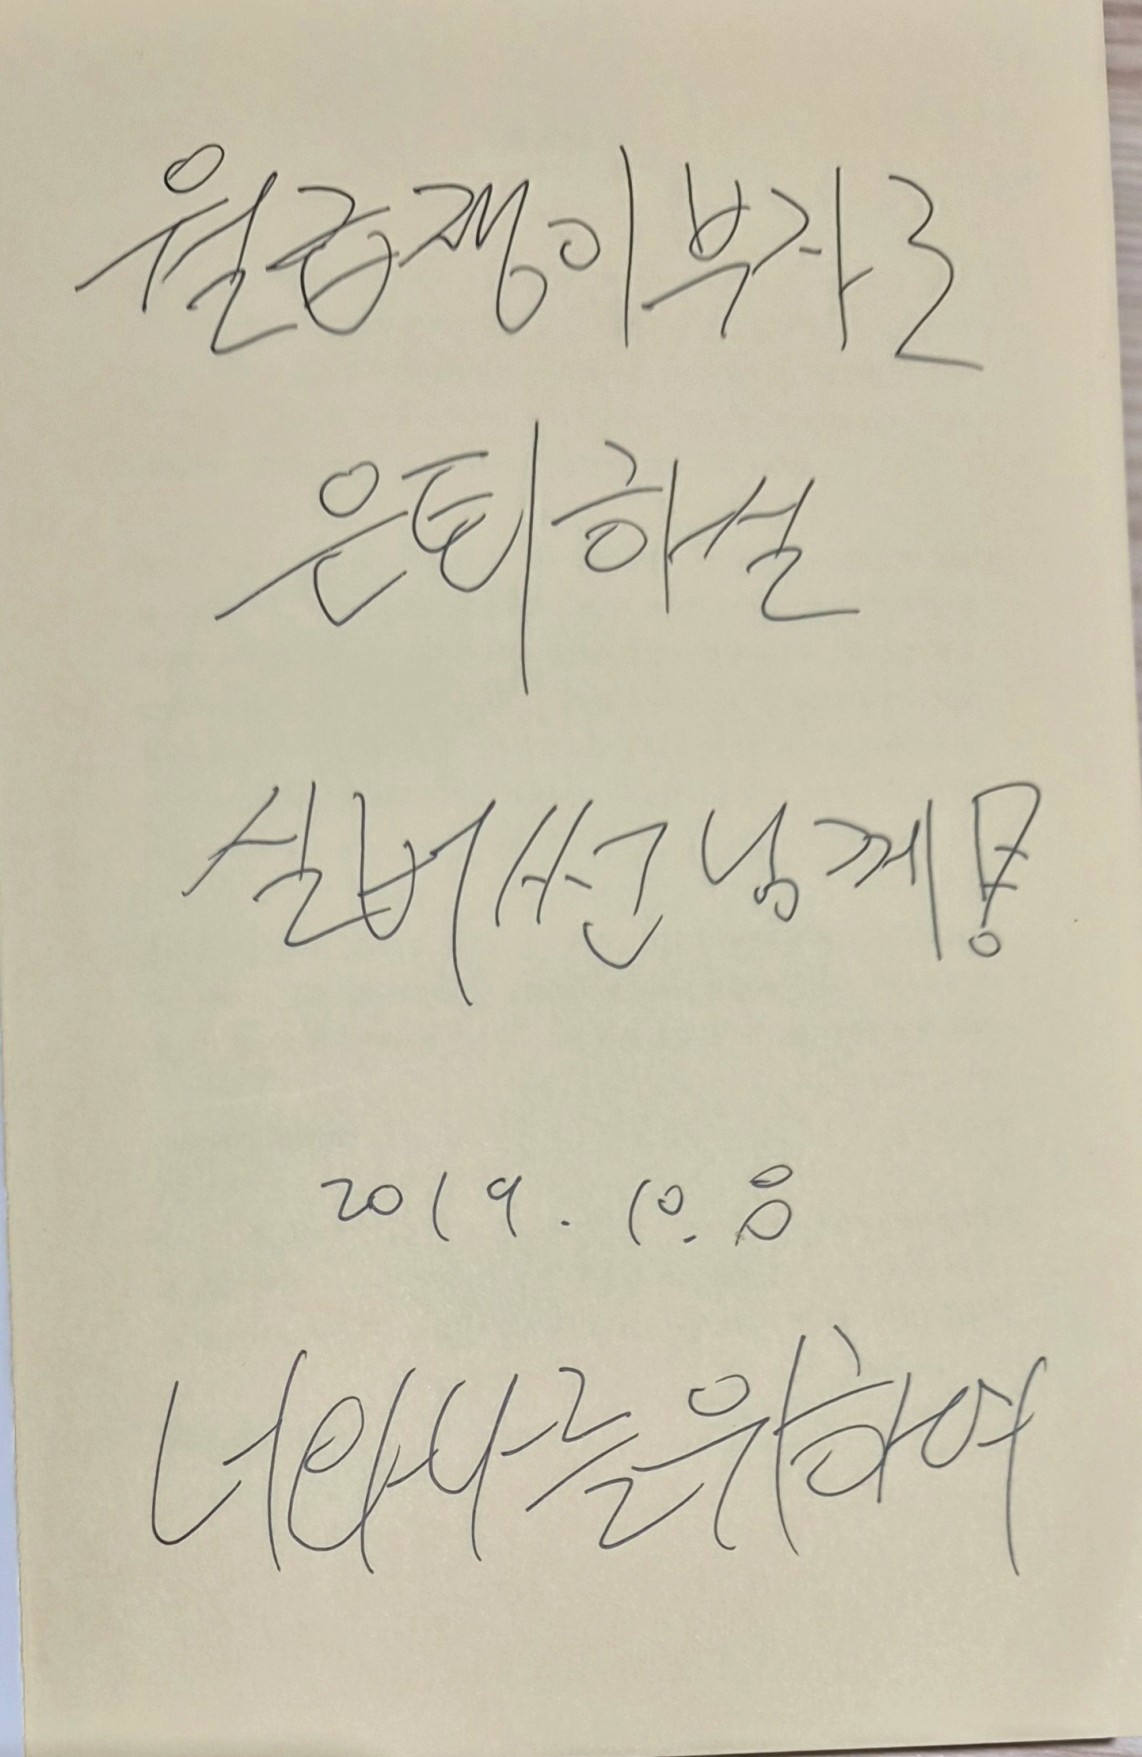 월급쟁이 부자로
은퇴하실
실버쑨님께!
2019. 10. 8
너와 나를 위하여